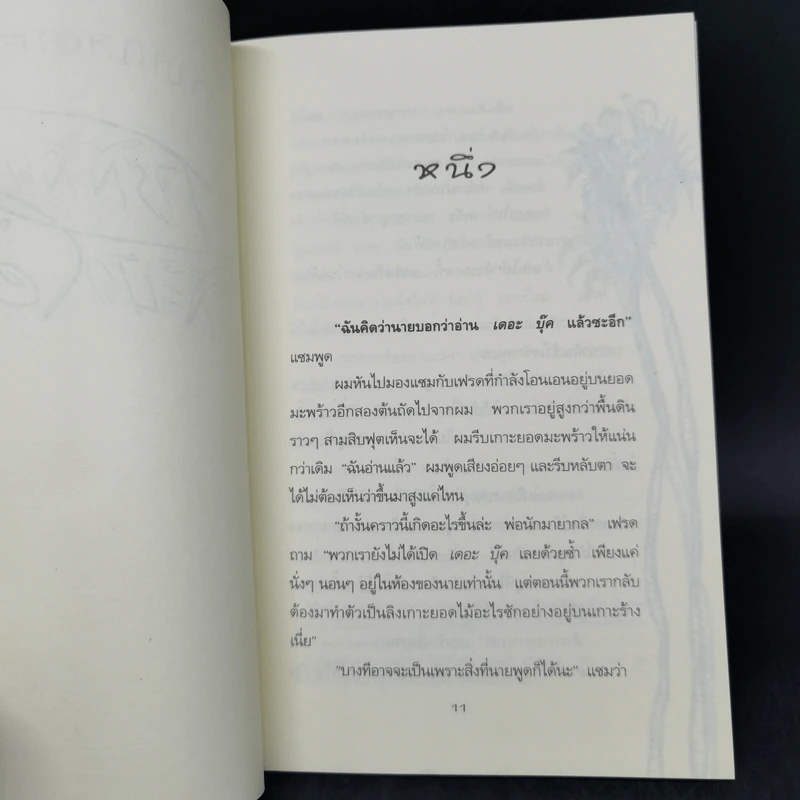 หนึ่ง
"ฉันคิดว่านายบอกว่าอ่าน เดอะ บุ๊ค แล้วซะอีก"
แซมพูด
ผมหันไปมองแซมกับเฟรดที่กำลังโอนเอนอยู่บนยอด
มะพร้าวอีกสองต้นถัดไปจากผม พวกเราอยู่สูงกว่าพื้นดิน
ราวๆ สามสิบฟุตเห็นจะได้ ผมรีบเกาะยอดมะพร้าวให้แน่น
กว่าเดิม "ฉันอ่านแล้ว" ผมพูดเสียงอ่อยๆ และรีบหลับตา จะ
ได้ไม่ต้องเห็นว่าขึ้นมาสูงแค่ไหน
"ถ้างั้นคราวนี้เกิดอะไรขึ้นล่ะ พ่อนักมายากล" เฟรด
ถาม "พวกเรายังไม่ได้เปิด เดอะ บุ๊ค เลยด้วยซ้ำ เพียงแค่
นั่งๆ นอนๆ อยู่ในห้องของนายเท่านั้น แต่ตอนนี้พวกเรากลับ
ต้องมาทำตัวเป็นลิงเกาะยอดไม้อะไรซักอย่างอยู่บนเกาะร้าง
เนี่ย"
"บางทีอาจจะเป็นเพราะสิ่งที่นายพูดก็ได้นะ" แซมว่า
11